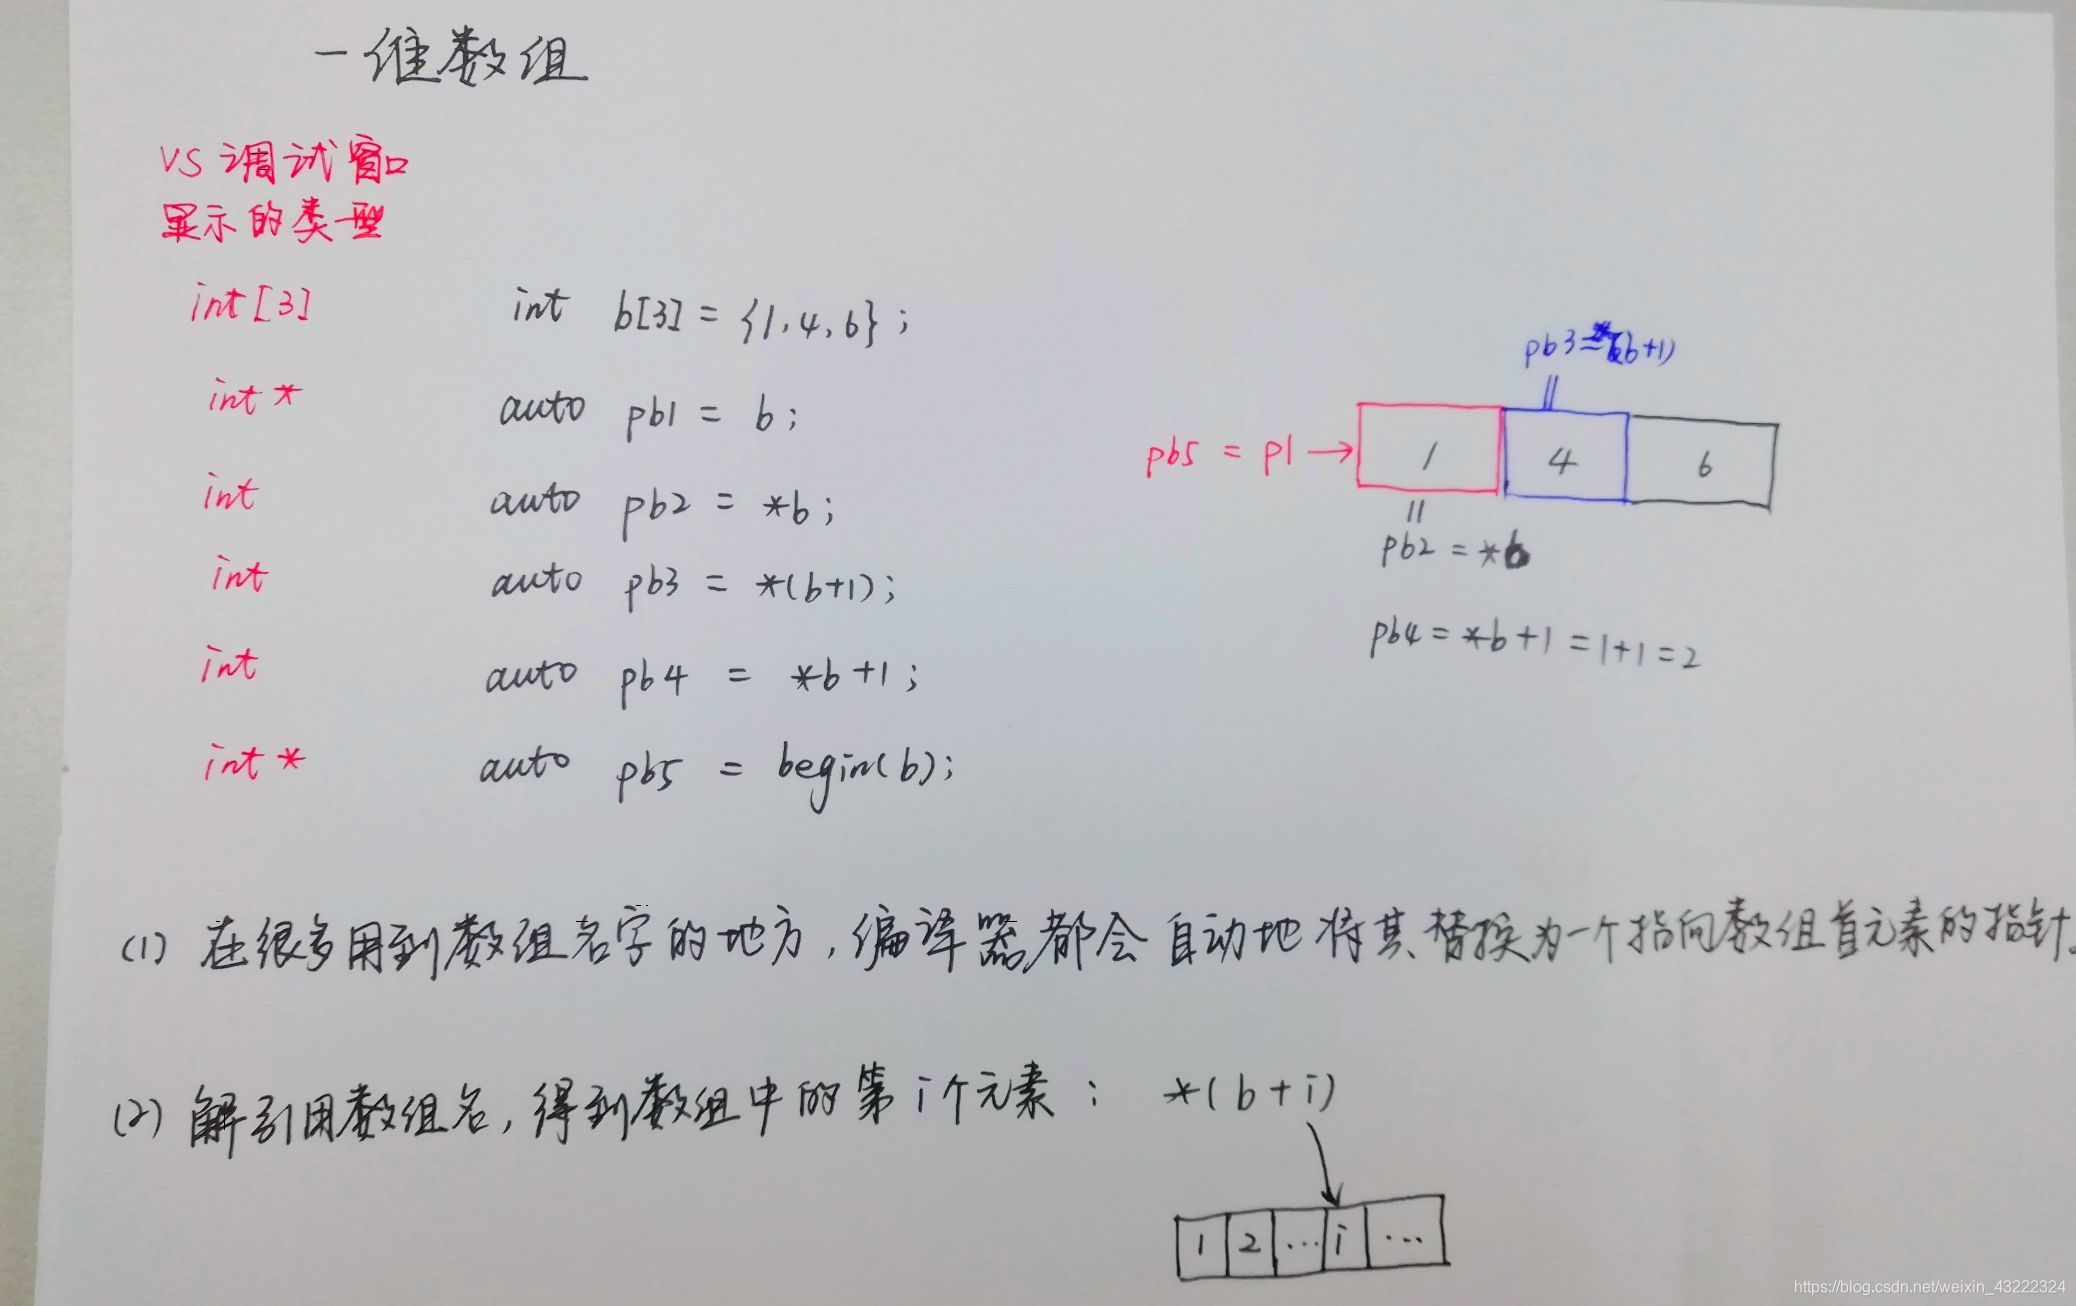 一维数组
VS 调试窗口
显示的类型
int[3] int b[3] = {1, 4, 6};
int * auto pb1 = b;
int auto pb2 = *b;
int auto pb3 = *(b+1);
int auto pb4 = *b+1;
int * auto pb5 = begin(b);
pb3 = *(b+1)
pb5 = p1 → 1 4 6
pb2 = *b
pb4 = *b+1 = 1+1 = 2
(1) 在很多用到数组名字的地方，编译器都会自动地将其替换为一个指向数组首元素的指针。
(2) 解引用数组名，得到数组中的第i个元素： *(b+i)
1 2 ... i ...
https://blog.csdn.net/weixin_43222324